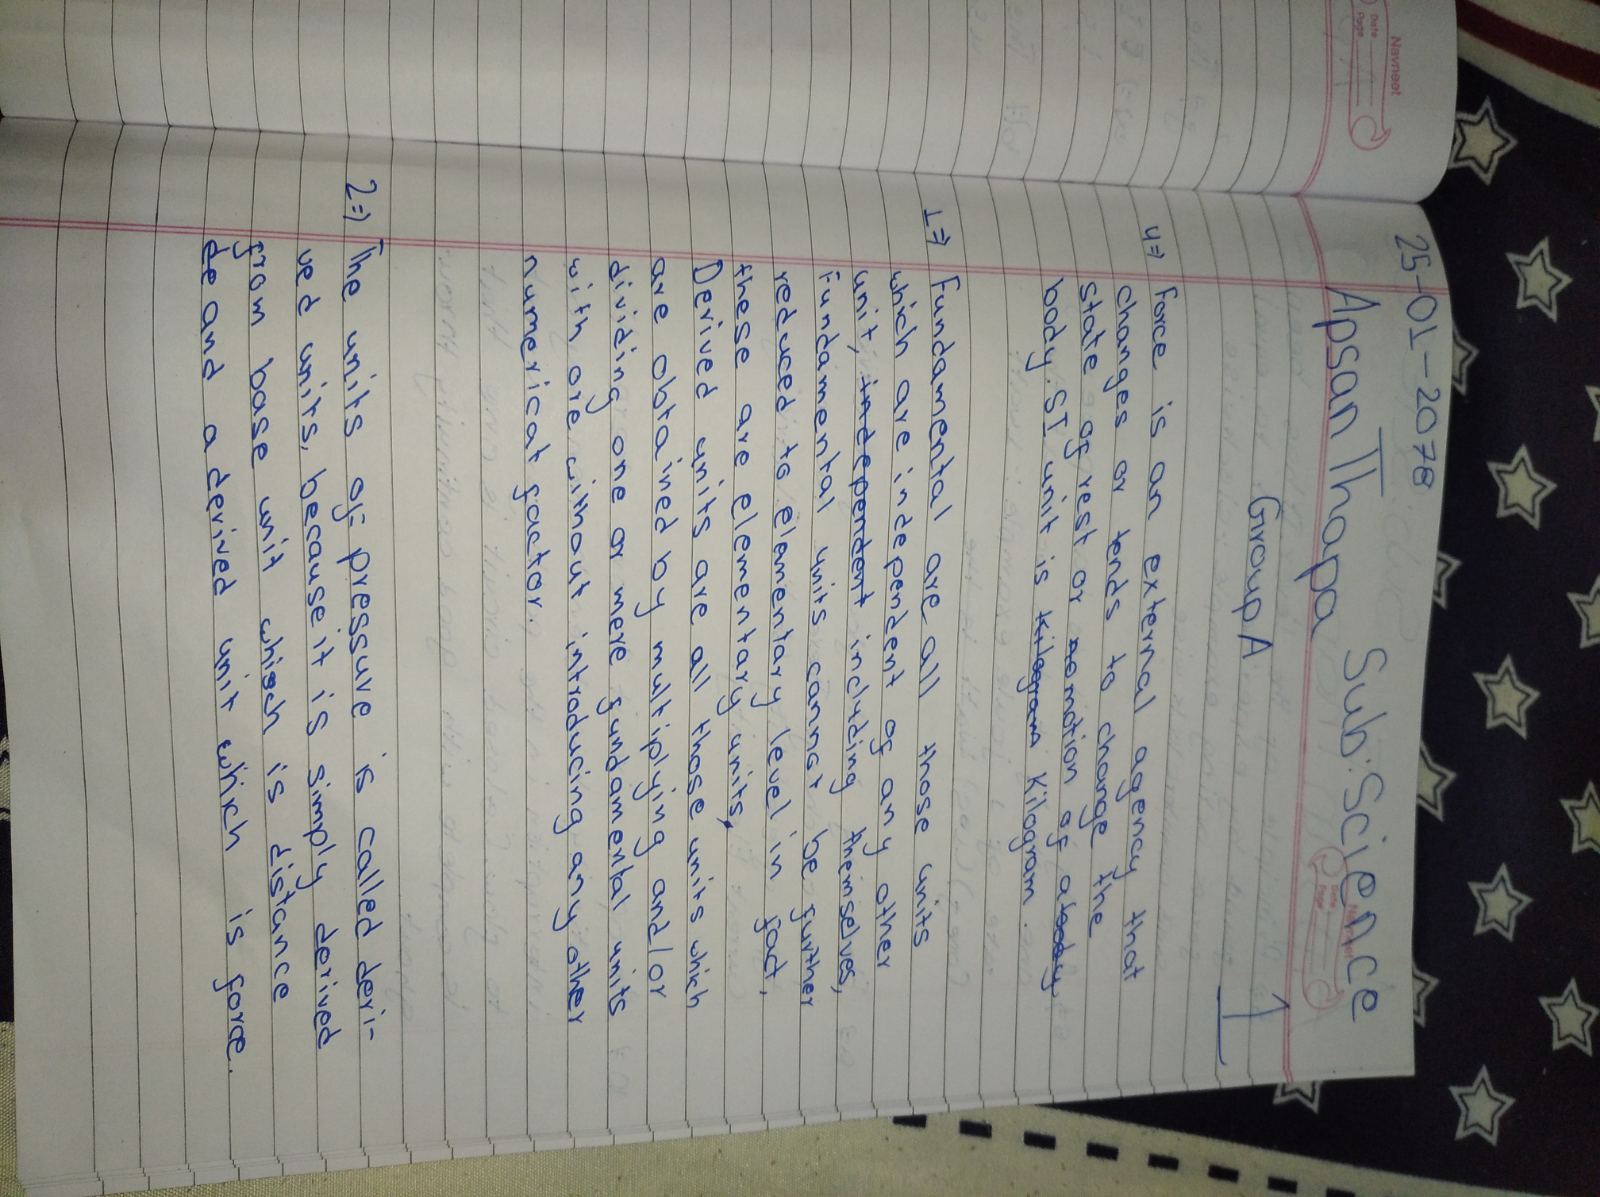 25-01-2078
Apsan Thapa Sub: Science
Group A
4⇒ Force is an external agency that
changes or tends to change the
state of rest or motion of a body
body. SI unit is Kilogram Kilogram.
1⇒ Fundamental are all those units
which are independent of any other
unit, independent including themselves,
Fundamental units cannot be further
reduced to elementary level in fact,
these are elementary units.
Derived units are all those units which
are obtained by multiplying and/or
dividing one or more fundamental units
with ore without introducing any other
numerical factor.
2⇒ The units of pressure is called deri-
ved units, because it is simply derived
from base unit which is distance
de and a derived unit which is force.
Navneet
Date
Page